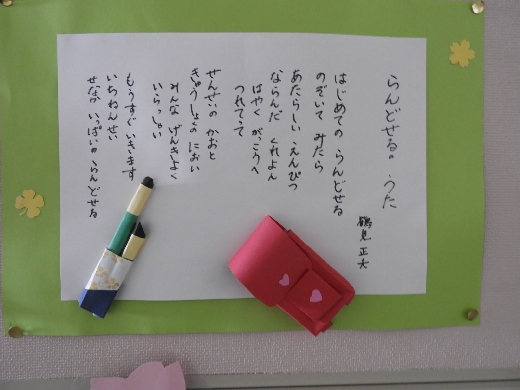 らんどせるの うた
鶴見 正夫
はじめての らんどせる
のぞいて みたら
あたらしい えんぴつ
ならんだ くれよん
はやく がっこうへ
つれてって
せんせいの かおと
きゅうしょくの におい
みんな げんきよく
いらっしゃい
もうすぐ いきます
いちねんせい
せなか いっぱいの らんどせる